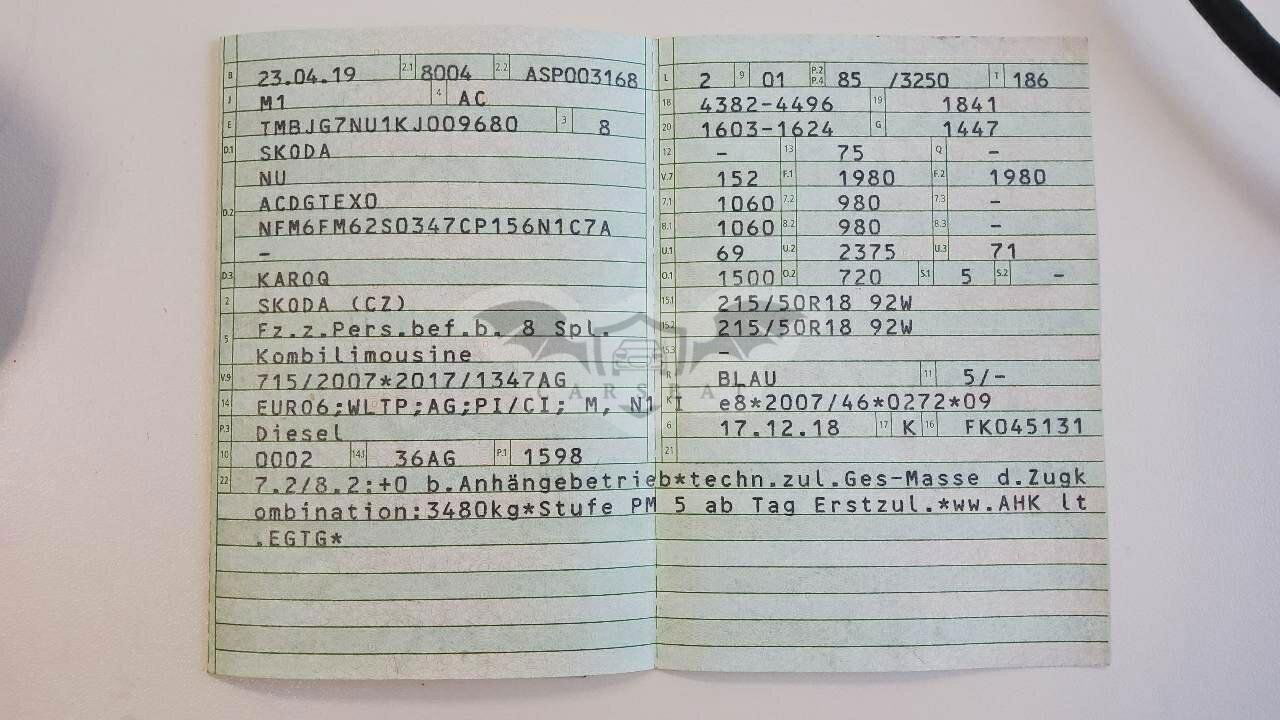 B 23.04.19 2.1 8004 2.2 ASP003168
J M1 4 AC
E TMBJG7NU1KJ009680 3 8
D.1 SKODA
NU
D.2 ACDGTEX0
NFM6FM62S0347CP156N1C7A
–
D.3 KAROQ
2 SKODA (CZ)
5 Fz.z.Pers.bef.b. 8 Spl.
Kombilimousine
V.9 715/2007*2017/1347AG
14 EURO6;WLTP;AG;PI/CI; M, N1 I
P.3 Diesel
10 0002 14.1 36AG P.1 1598
L 2 9 01 P.2 P.4 85 /3250 T 186
18 4382-4496 19 1841
20 1603-1624 G 1447
12 – 13 75 Q –
V.7 152 F.1 1980 F.2 1980
7.1 1060 7.2 980 7.3 –
8.1 1060 8.2 980 8.3 –
U.1 69 U.2 2375 U.3 71
O.1 1500 O.2 720 S.1 5 S.2 –
15.1 215/50R18 92W
15.2 215/50R18 92W
15.3 –
R BLAU 11 5/–
K e8*2007/46*0272*09
6 17.12.18 17 K 16 FK045131
21
22 7.2/8.2:+0 b.Anhängebetrieb*techn.zul.Ges-Masse d.Zugk
ombination:3480kg*Stufe PM 5 ab Tag Erstzul.*ww.AHK lt
.EGTG*